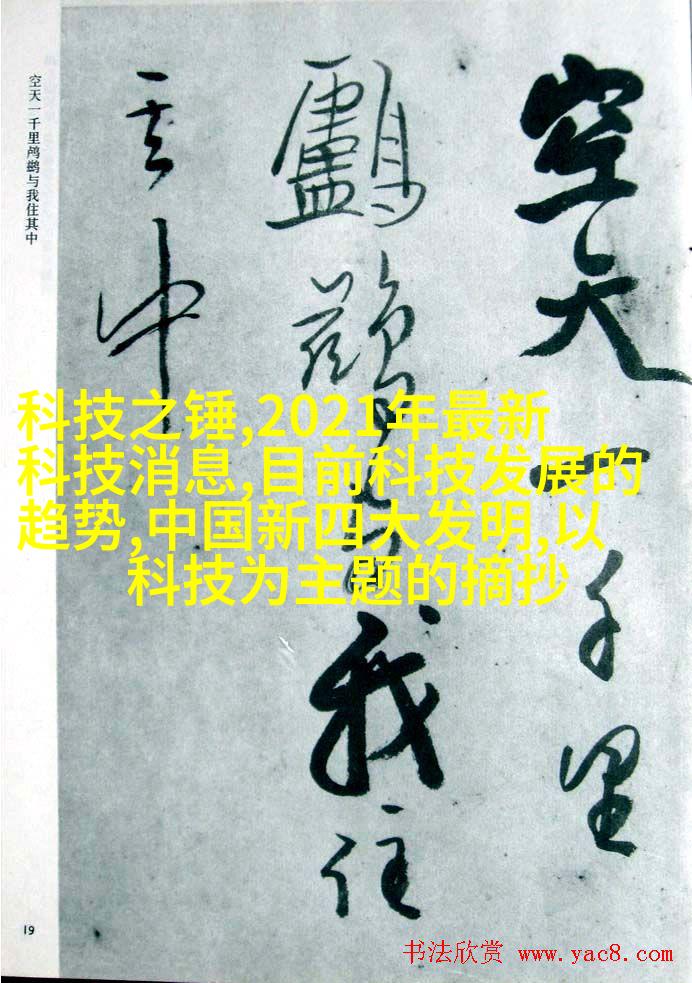 空天一千里
鸕鶿與我住
其中
空天一千里鸬鹚与我住其中
科技之锤,2021年最新
科技消息,目前科技发展的
趋势,中国新四大发明,以
科技为主题的摘抄
19
书法欣赏 www.yac8.com